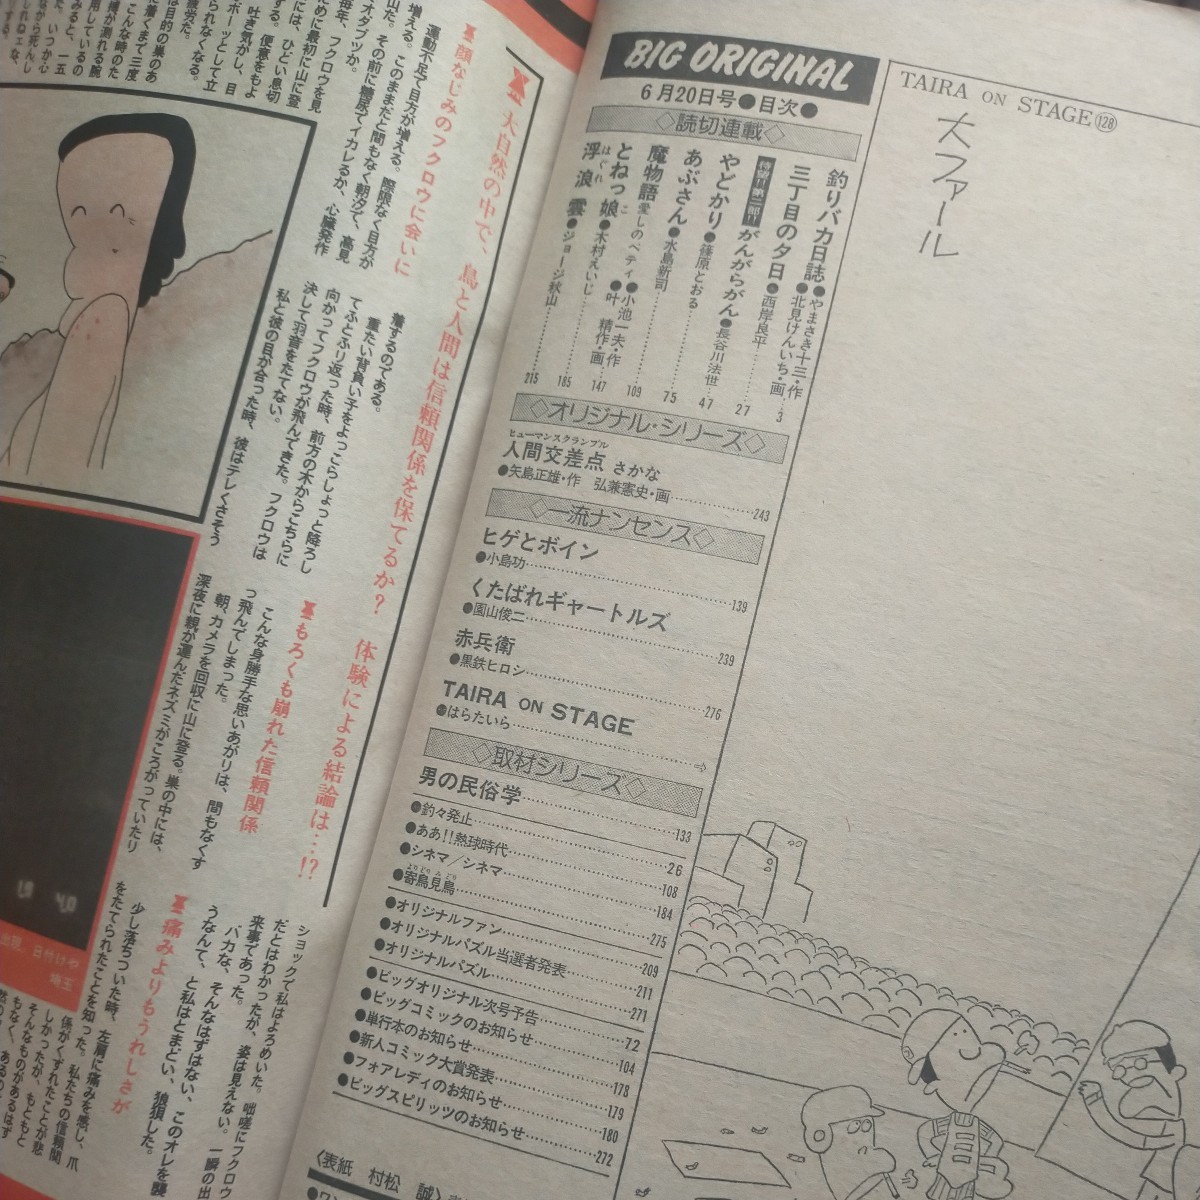 BIG ORIGINAL
6月20日号●目次●
◇読切連載◇
釣りバカ日誌●やまさき十三・作
●北見けんいち・画 3
三丁目の夕日●西岸良平 27
特選!!第二部!!がんがらがん●長谷川法世 47
やどかり●篠原とおる 75
あぶさん●水島新司 109
魔物語 愛しのベティ●小池一夫・作
●叶精作・画 147
とねっ娘●木村えいじ 185
浮浪雲●ジョージ秋山 215
◇オリジナル・シリーズ◇
ヒューマンスクランブル
人間交差点 さかな
●矢島正雄・作 弘兼憲史・画 243
◇一流ナンセンス◇
ヒゲとボイン
●小島功 139
くたばれギャートルズ
●園山俊二 239
赤兵衛
●黒鉄ヒロシ 276
TAIRA ON STAGE
●はらたいら ⇨
◇取材シリーズ◇
男の民俗学 133
●釣々発止 26
●ああ!!熱球時代 108
●シネマ/シネマ 184
●寄鳥見鳥 275
●オリジナルファン 209
●オリジナルパズル当選者発表 211
●オリジナルパズル 271
●ビッグオリジナル次号予告 72
●ビッグコミックのお知らせ 104
●単行本のお知らせ 178
●新人コミック大賞発表 179
●フォアレディのお知らせ 180
●ビッグスピリッツのお知らせ 272
〈表紙 村松 誠〉
TAIRA ON STAGE 128
大ファール
大自然の中で、鳥と人間は信頼関係を保てるか? 体験による結論は…!?
顔なじみのフクロウに会いに
運動不足で目方が増える。際限なく目方が
増える。このままだと間もなく朝汐で、高見
山だ。その前に糖尿でイカレるか、心臓発作
でオダブツか。
毎年、フクロウを見
着するのである。
重たい背負い子をよっこらしょっと降ろし
てふとふり返った時、前方の木からこちらに
向かってフクロウが飛んできた。フクロウは
決して羽音をたてない。
私と彼の目が合った時、彼はテレくさそう
もろくも崩れた信頼関係
こんな身勝手な思いあがりは、間もなくす
っ飛んでしまった。
朝、カメラを回収に山に登る。巣の中には、
深夜に親が運んだネズミがころがっていたり
ショックで私はよろめいた。咄嗟にフクロウ
だとはわかったが、姿は見えない。一瞬の出
来事であった。
バカな、そんなはずはない、このオレを襲
うなんて、と私はとまどい、狼狽した。
痛みよりもうれしさが
少し落ちついた時、左肩に痛みを感じ、爪
をたてられたことを知った。私たちの信頼関
係がくずれたことが悲
しかったが、もともと
そんなものがあるはず
もなく、